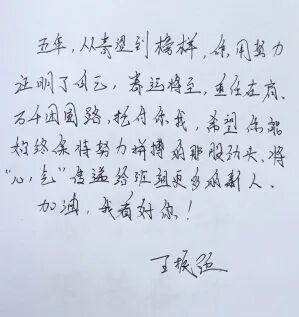 五年，从希望到榜样，你用努力
证明了自己，春运将至，重任在肩、
万千团圆路，托付你我，希望你能
始终保持努力拼搏的那股劲头、将
“心气”传递给班组更多的新人。
加油，我看好你！
王振强